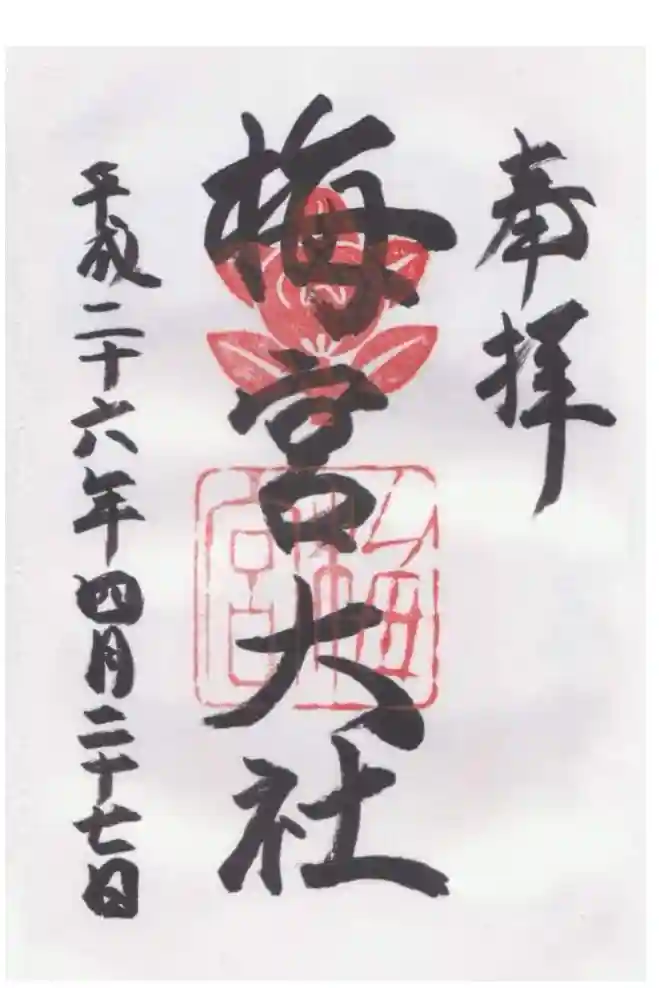 奉拝
梅宮大社
梅宮
平成二十六年四月二十七日